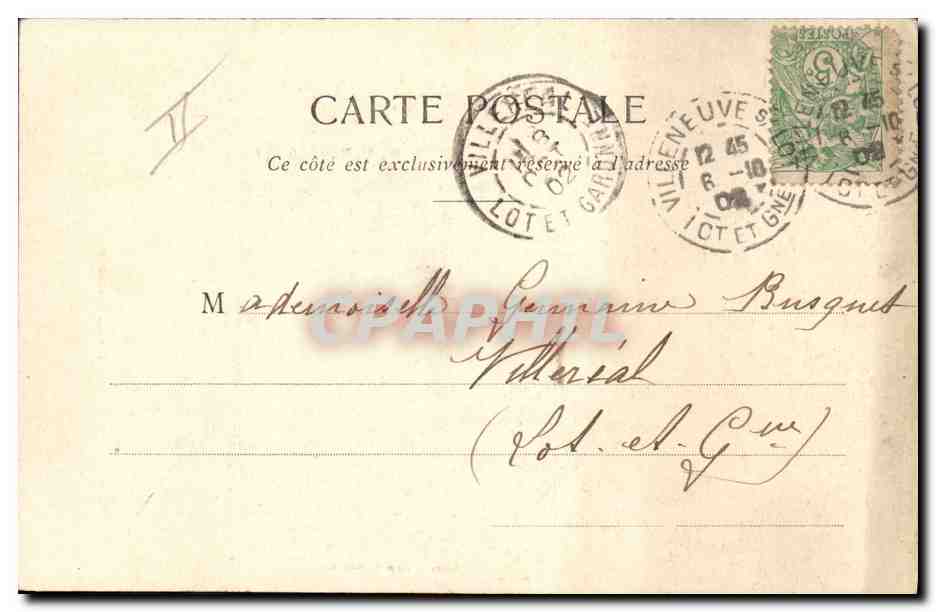 II
POSTES
5
CARTE POSTALE
Ce côté est exclusivement réservé à l'adresse
LOT ET GARONNE
02
VILLENEUVE S LOT
12 45
6 -10
02
LOT ET GNE
12 45
6 10
02
Mademoiselle Germaine Busquet
CPAPHIL
Villeréal
(Lot-et-Gne)